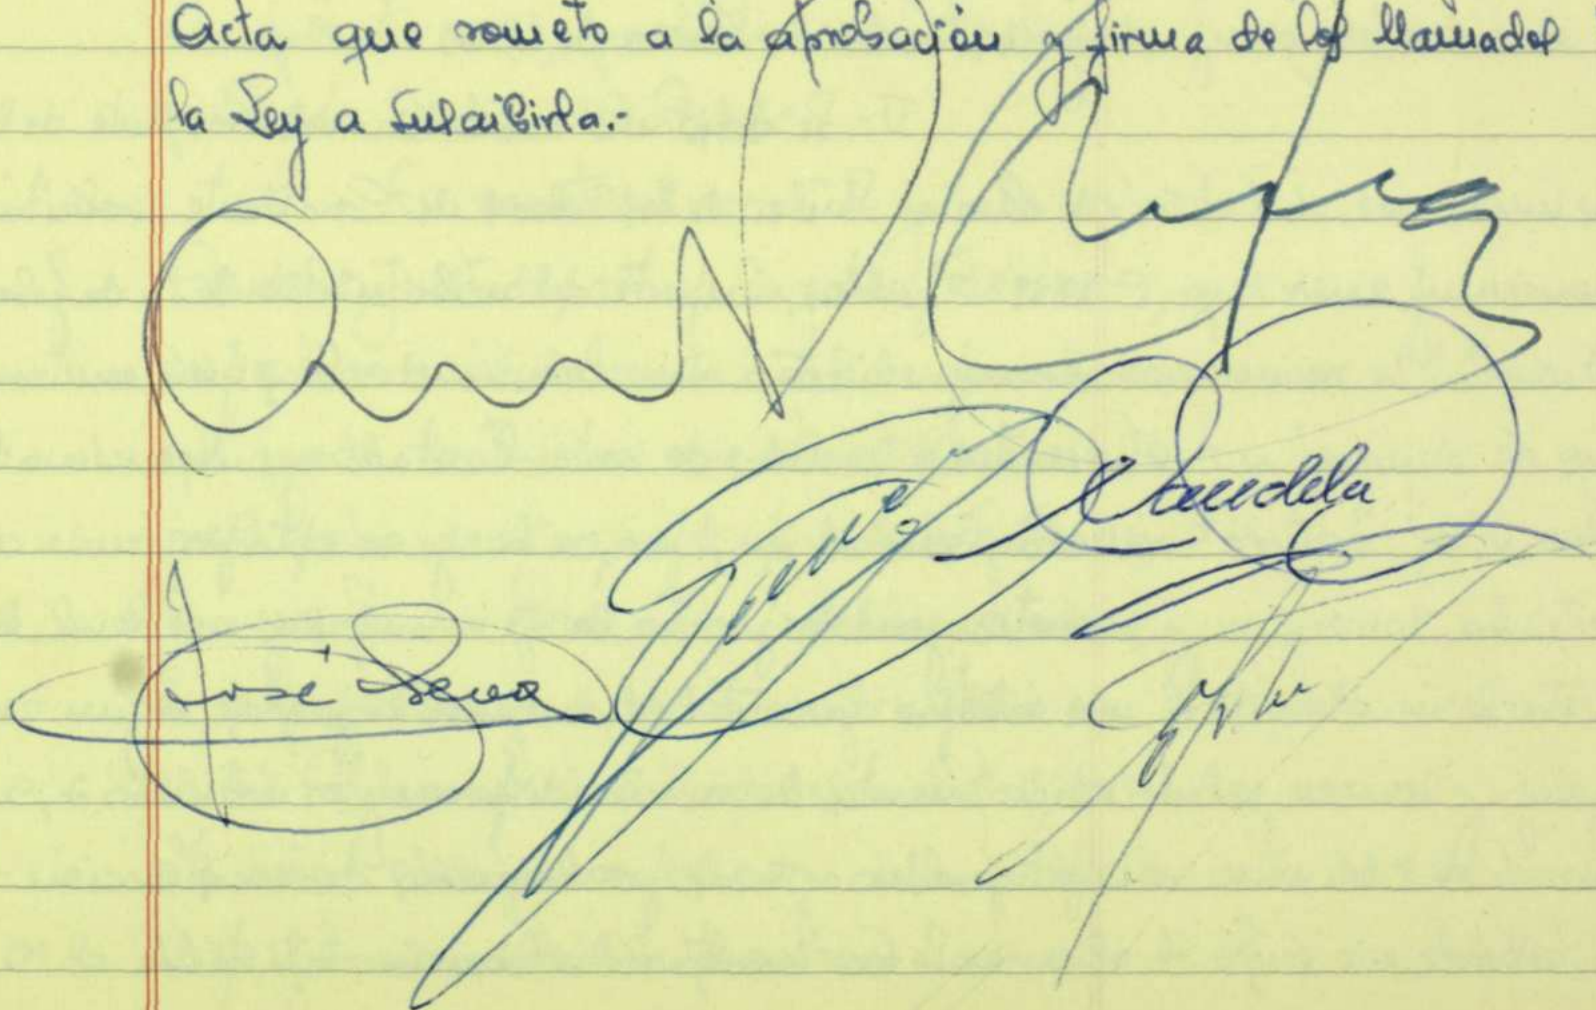 Acta que someto a la aprobación y firma de los llamados
la Ley a suscribirla.-
Candela
José